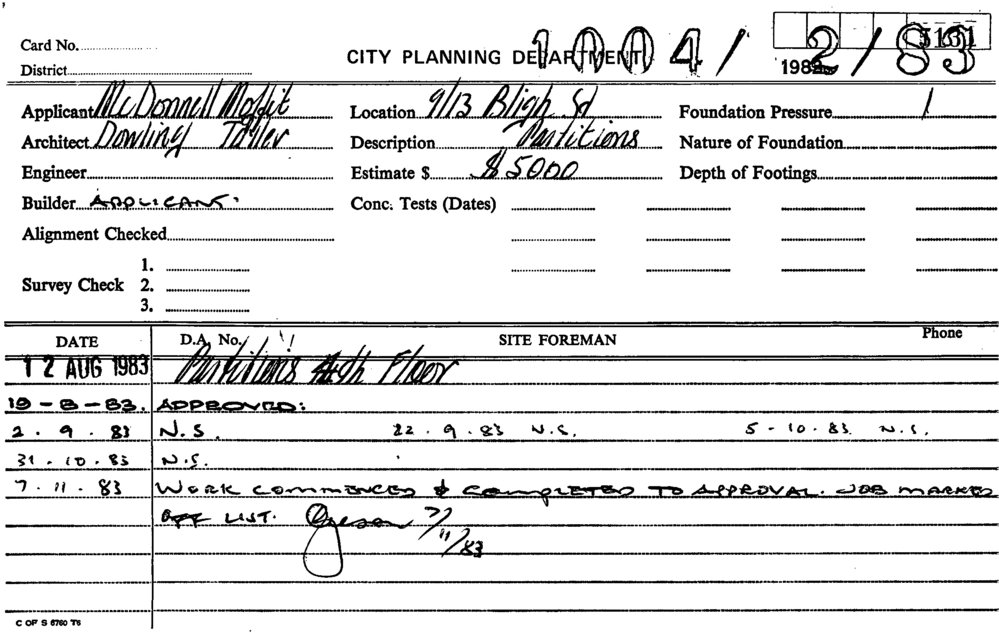 5131
Card No.
CITY PLANNING DEPARTMENT 1004/2/83
District
198
Applicant McDonnell Moffit Location 9/13 Bligh St Foundation Pressure /
Architect Dowling Description Partitions Nature of Foundation
Engineer Estimate $ $5000 Depth of Footings
Builder APPLICANT. Conc. Tests (Dates)
Alignment Checked
1.
Survey Check 2.
3.
DATE D.A. No. SITE FOREMAN Phone
12 AUG 1983 Partitions 4th Floor
19-8-83. APPROVED:
2.9.83 N.S. 22.9.83 N.S. 5-10.83. N.S.
31.10.83 N.S.
7.11.83 WORK COMMENCED & COMPLETED TO APPROVAL. JOB MARKED
OFF LIST. 7/11/83
C OF S 6760 T6